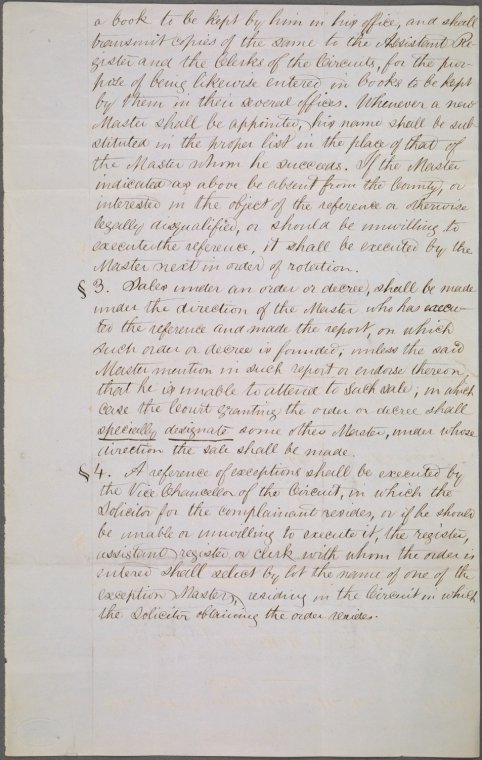 a book to be kept by him in his office, and shall
transmit copies of the same to the Assistant Re-
gister and the Clerks of the Circuits, for the pur-
pose of being likewise entered in books to be kept
by them in their several offices. Whenever a new
Master shall be appointed, his name shall be sub-
stituted in the proper list in the place of that of
the Master whom he succeeds. If the Master
indicated as above be absent from the County, or
interested in the object of the reference or otherwise
legally disqualified, or should be unwilling to
execute the reference, it shall be executed by the
Master next in order of rotation.
§ 3. Sales under an order or decree, shall be made
under the direction of the Master who has execu-
ted the reference and made the report, on which
such order or decree is founded, unless the said
Master mention in such report or endorse thereon,
that he is unable to attend to such sale; in which
case the Court granting the order or decree shall
specially designate some other Master, under whose
direction the sale shall be made.
§ 4. A reference of exceptions shall be executed by
the Vice Chancellor of the Circuit, in which the
Solicitor for the complainant resides, or if he should
be unable or unwilling to execute it, the register,
assistant register or clerk with whom the order is
entered shall select by lot the name of one of the
exception Masters, residing in the Circuit in which
the Solicitor obtaining the order resides.